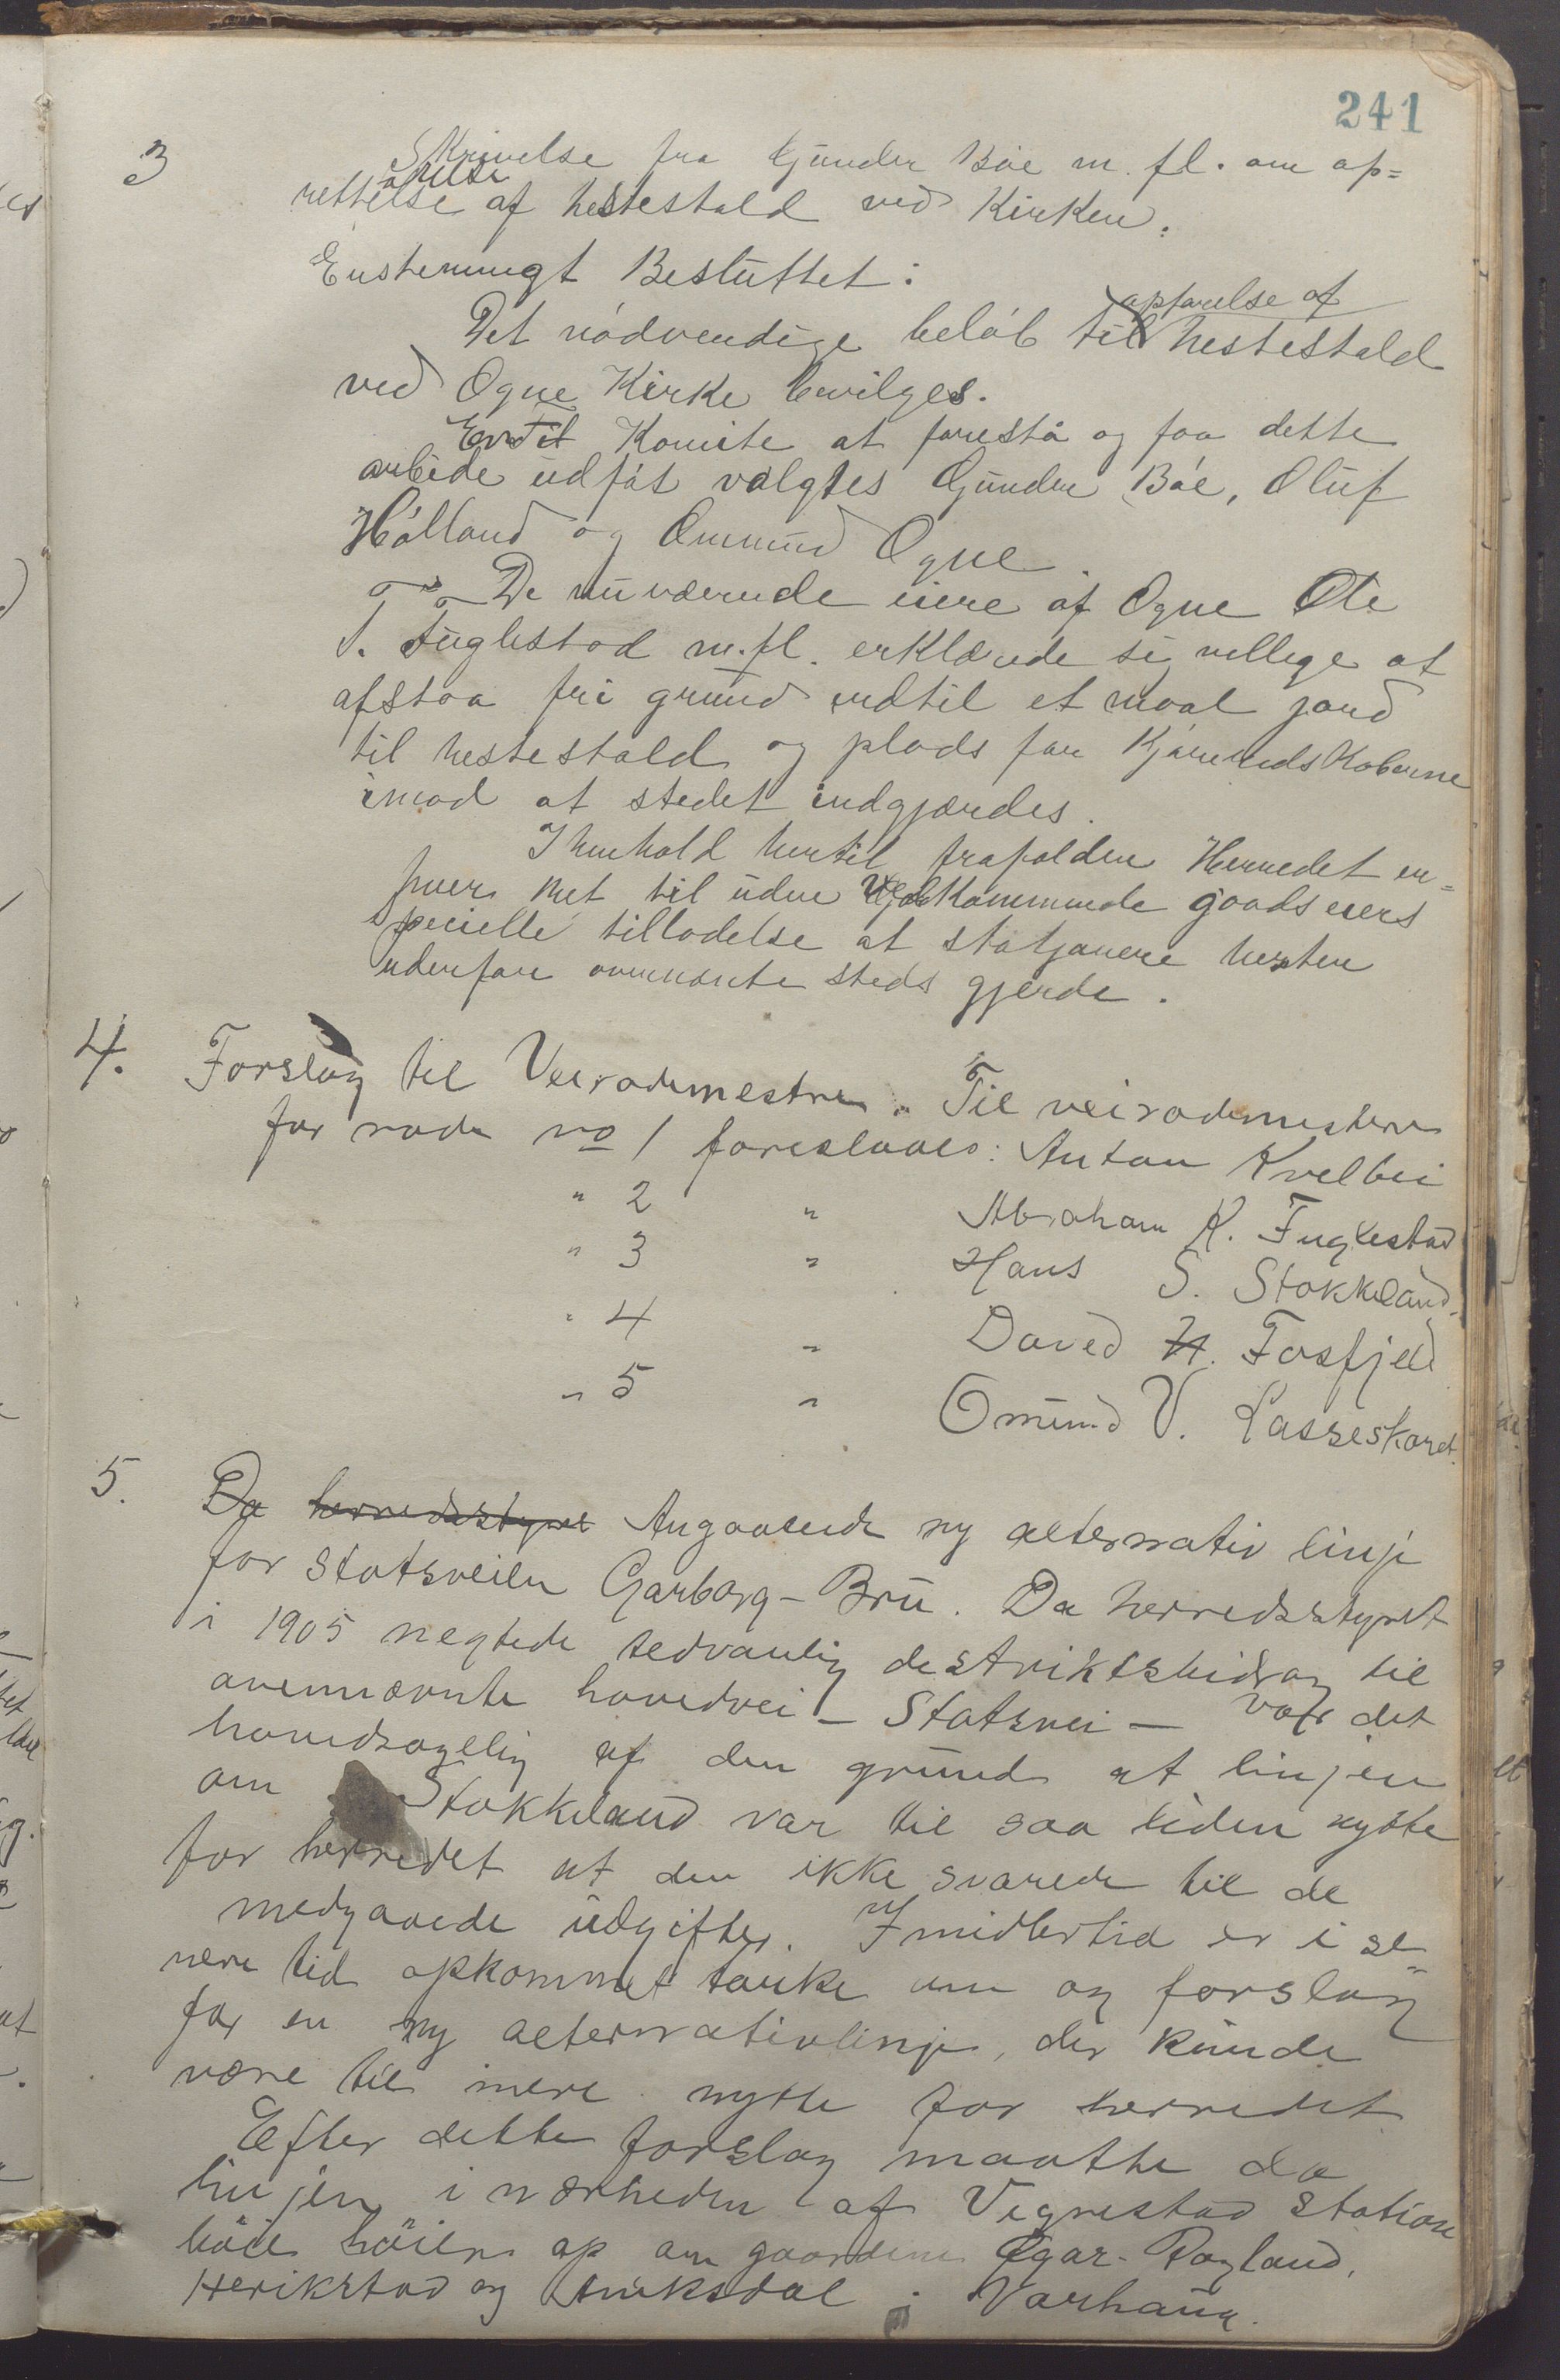 241
3 Skrivelse fra Gunder Böe m. fl. om op=
rettelse af hestestald ved Kirken.
Enstemmigt Besluttet:
opførelse af
Det nödvendige belöb til hestestald
ved Ogne Kirke bevilges.
Til Komite at forestå og faa dette
arbeide udföt valgtes Gunder Böe, Oluf
Hölland og Ommund Ogne.
De nuværende eiere af Ogne Ole
T. Fuglestad m.fl. erklærede sig villige at
afstaa fri grund indtil et maal jord
til hestestald og plads for Kjøreredskaberne
imod at stedet indgjærdes.
I henhold hertil frafalder Herredet en=
hver ret til uden Vedkommende gaards eiers
specielle tilladelse at stasjonere hesten
udenfor ovennævnte steds gjerde.
4. Forslag til Veirodemestre. Til veirodemestere
for rode no 1 foreslaaes: Anton Kvelbei
" 2 " Abraham K. Fuglestad
" 3 " Hans S. Stokkeland.
" 4 " David H. Fosfjeld
" 5 " Omund V. Lasseskaret.
5. Da herredsstyret Angaaende ny alternativ linje
for Statsveien Garborg - Bru. Da herredsstyret
i 1905 negtede sedvanlig destriktsbidrag til
ovennævnte hovedvei - Statsvei - var det
hovedsagelig af den grund at linjen
om Stokkeland var til saa liden nytte
for herredet at den ikke svarede til de
medgaaede udgifter. Imidlertid er i se=
nere tid opkommet tanke om og forslag
for en ny alternativlinje, der kunde
være til mere nytte for herredet
Efter dette forslag maatte da
linjen i nærheden af Vigrestad Station
böie höiere op om gaardene Ogar-Rogland,
Herikstad og Auksdal i Varhaug.